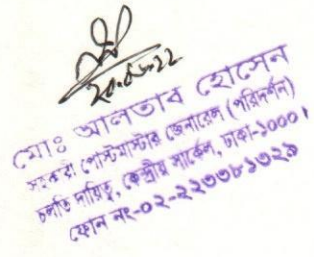 ২০.০৬.২২
মোঃ আলতাব হোসেন
সহকারী পোস্টমাস্টার জেনারেল (পরিদর্শন)
চলতি দায়িত্ব, কেন্দ্রীয় সার্কেল, ঢাকা-১০০০।
ফোন নং-০২-২২৩৩৮১৩২৯